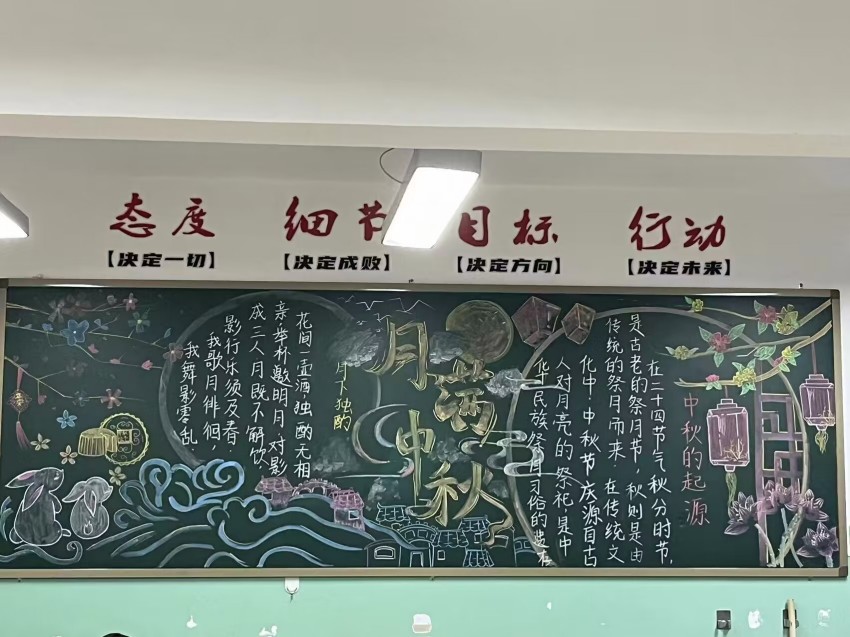 态度
细节
目标
行动
【决定一切】
【决定成败】
【决定方向】
【决定未来】
中秋的起源
在二十四节气秋分时节,
是古老的祭月节,秋则是由
传统的祭月而来.在传统文
化中,中秋节庆源自古
人对月亮的祭祀,是中
华民族祭月习俗的遗存
月满中秋
月下独酌
花间一壶酒,独酌无相
亲.举杯邀明月,对影
成三人.月既不解饮,
影行乐须及春.
我歌月徘徊,
我舞影零乱